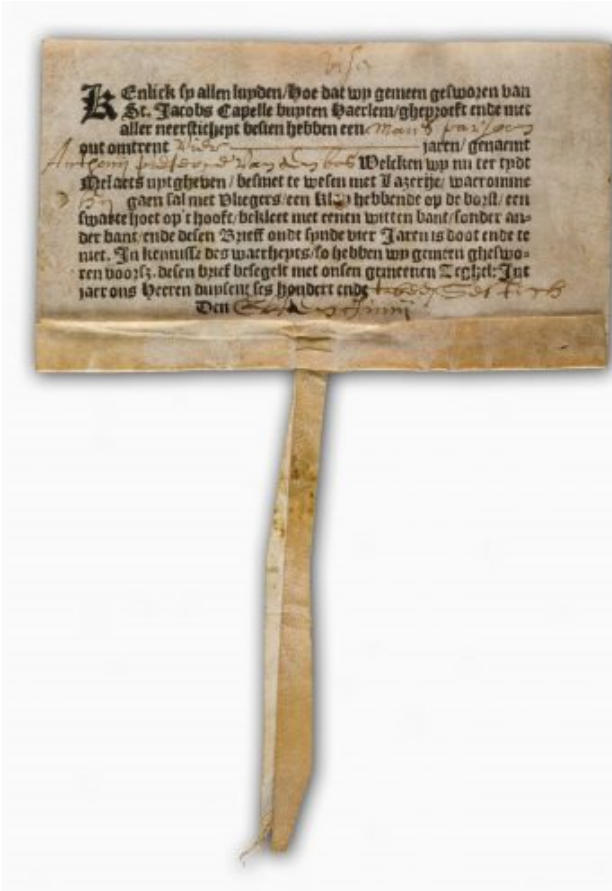 visa
KEnlick sy allen luyden/Hoe dat wy gemeen gesworen van
St. Jacobs Capelle buyten Haerlem/gheproeft ende met
aller neersticheyt besien hebben een Mans parsoon
out omtrent jaren/genaemt
Anthonij pieterse van den bos Welcken wy nu ter tydt
Melaets uytgheven/besmet te wesen met Lazerye/waeromme
hy gaen sal met Vliegers/een hebbende op de borst/een
swarte hoet op't hooft/bekleet met eenen witten bant/sonder an-
der bant/ende desen Brieff oudt synde vier Jaren is doot ende te
niet. In kennisse des waerheyts/so hebben wy gemeen gheswo-
ren voorsz. desen brief besegelt met onsen gemeenen Zeghel: Int
jaer ons Heeren duysent ses hondert ende
Den